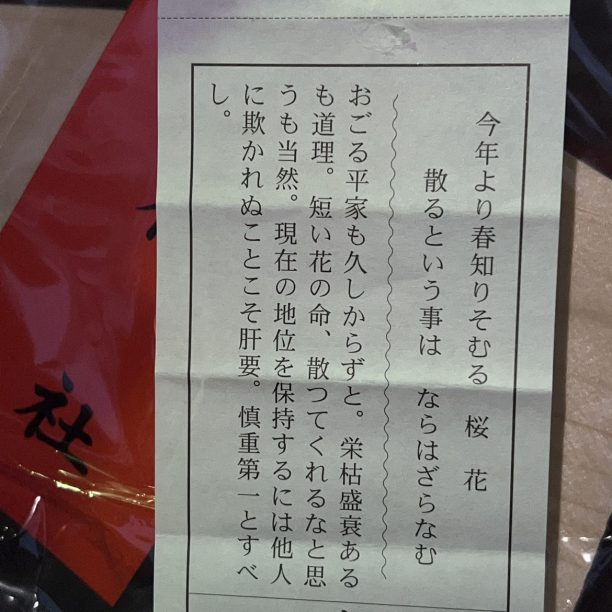 今年より春知りそむる 桜 花
散るという事は ならはざらなむ
おごる平家も久しからずと。栄枯盛衰ある
も道理。短い花の命、散つてくれるなと思
うも当然。現在の地位を保持するには他人
に欺かれぬことこそ肝要。慎重第一とすべ
し。
社